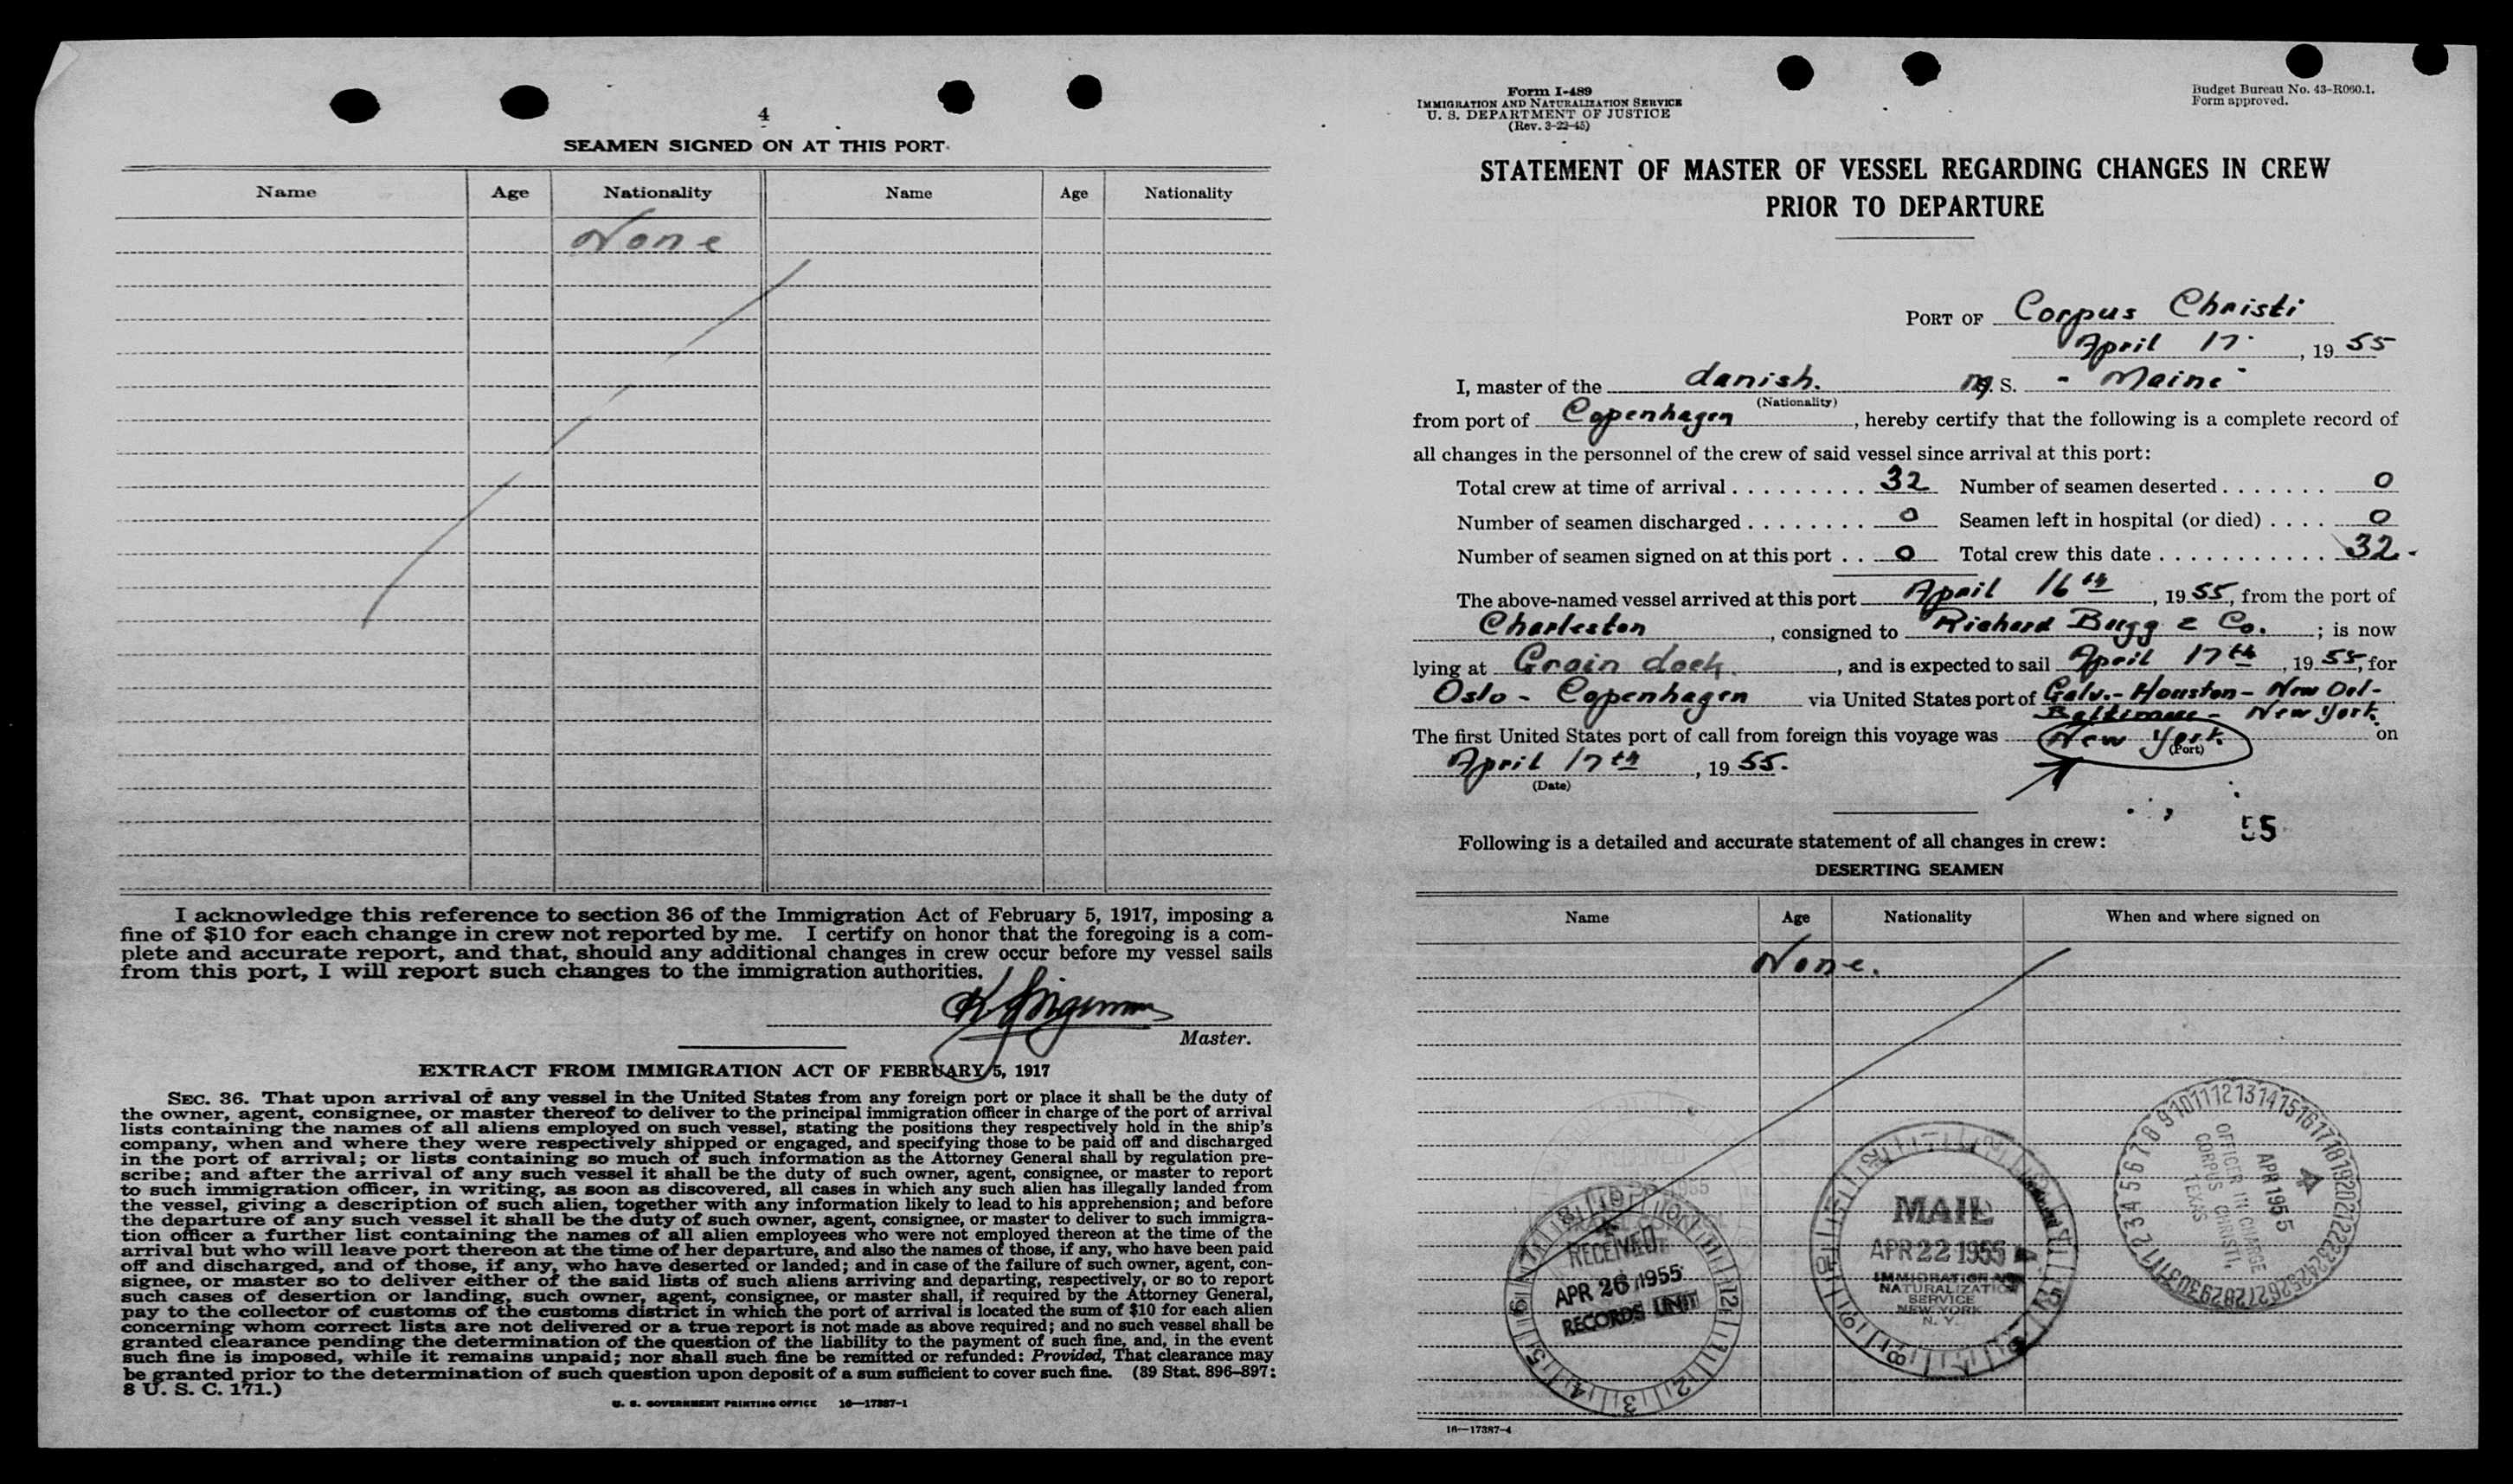 4
SEAMEN SIGNED ON AT THIS PORT
Name Age Nationality Name Age Nationality
None
I acknowledge this reference to section 36 of the Immigration Act of February 5, 1917, imposing a
fine of $10 for each change in crew not reported by me. I certify on honor that the foregoing is a com-
plete and accurate report, and that, should any additional changes in crew occur before my vessel sails
from this port, I will report such changes to the immigration authorities.
Master.
EXTRACT FROM IMMIGRATION ACT OF FEBRUARY 5, 1917
SEC. 36. That upon arrival of any vessel in the United States from any foreign port or place it shall be the duty of
the owner, agent, consignee, or master thereof to deliver to the principal immigration officer in charge of the port of arrival
lists containing the names of all aliens employed on such vessel, stating the positions they respectively hold in the ship's
company, when and where they were respectively shipped or engaged, and specifying those to be paid off and discharged
in the port of arrival; or lists containing so much of such information as the Attorney General shall by regulation pre-
scribe; and after the arrival of any such vessel it shall be the duty of such owner, agent, consignee, or master to report
to such immigration officer, in writing, as soon as discovered, all cases in which any such alien has illegally landed from
the vessel, giving a description of such alien, together with any information likely to lead to his apprehension; and before
the departure of any such vessel it shall be the duty of such owner, agent, consignee, or master to deliver to such immigra-
tion officer a further list containing the names of all alien employees who were not employed thereon at the time of the
arrival but who will leave port thereon at the time of her departure, and also the names of those, if any, who have been paid
off and discharged, and of those, if any, who have deserted or landed; and in case of the failure of such owner, agent, con-
signee, or master so to deliver either of the said lists of such aliens arriving and departing, respectively, or so to report
such cases of desertion or landing, such owner, agent, consignee, or master shall, if required by the Attorney General,
pay to the collector of customs of the customs district in which the port of arrival is located the sum of $10 for each alien
concerning whom correct lists are not delivered or a true report is not made as above required; and no such vessel shall be
granted clearance pending the determination of the question of the liability to the payment of such fine, and, in the event
such fine is imposed, while it remains unpaid; nor shall such fine be remitted or refunded: Provided, That clearance may
be granted prior to the determination of such question upon deposit of a sum sufficient to cover such fine. (39 Stat. 896–897;
8 U. S. C. 171.)
U. S. GOVERNMENT PRINTING OFFICE 16—17387-1
Form I-489
IMMIGRATION AND NATURALIZATION SERVICE
U. S. DEPARTMENT OF JUSTICE
(Rev. 3-22-45)
Budget Bureau No. 43-R060.1.
Form approved.
STATEMENT OF MASTER OF VESSEL REGARDING CHANGES IN CREW
PRIOR TO DEPARTURE
PORT OF Corpus Christi
April 17. , 19 55
I, master of the danish. M. S. "Maine"
(Nationality)
from port of Copenhagen, hereby certify that the following is a complete record of
all changes in the personnel of the crew of said vessel since arrival at this port:
Total crew at time of arrival . . . . . . . . . 32 Number of seamen deserted . . . . . . . 0
Number of seamen discharged . . . . . . . . 0 Seamen left in hospital (or died) . . . . 0
Number of seamen signed on at this port . . 0 Total crew this date . . . . . . . . . . . . 32-
The above-named vessel arrived at this port April 16th, 19 55, from the port of
Charleston, consigned to Richard Bugg & Co. ; is now
lying at Grain dock, and is expected to sail April 17th, 19 55, for
Oslo - Copenhagen via United States port of Galv.- Houston - New Orl-
Baltimore - New York.
The first United States port of call from foreign this voyage was New York. on
(Port)
April 17th, 19 55.
(Date)
55
Following is a detailed and accurate statement of all changes in crew:
DESERTING SEAMEN
Name Age Nationality When and where signed on
None.
RECEIVED
APR 26 1955
RECORDS UNIT
MAIL
APR 22 1955
IMMIGRATION AND
NATURALIZATION
SERVICE
NEW YORK
N. Y.
1 2 3 4 5 6 7 8 9 10 11 12 13 14 15 16 17 18 19 20 21 22 23 24 25 26 27 28 29 30 31
APR 1955
OFFICER IN CHARGE
CORPUS CHRISTI,
TEXAS
16—17387-4